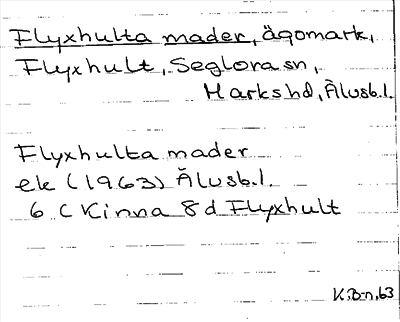 Flyxhulta mader, ägomark,
Flyxhult, Seglora sn,
Markshd, Älvsb.l.
Flyxhulta mader
ek (1963) Älvsb.l.
6 C Kinna 8 d Flyxhult
K.B-n, 63